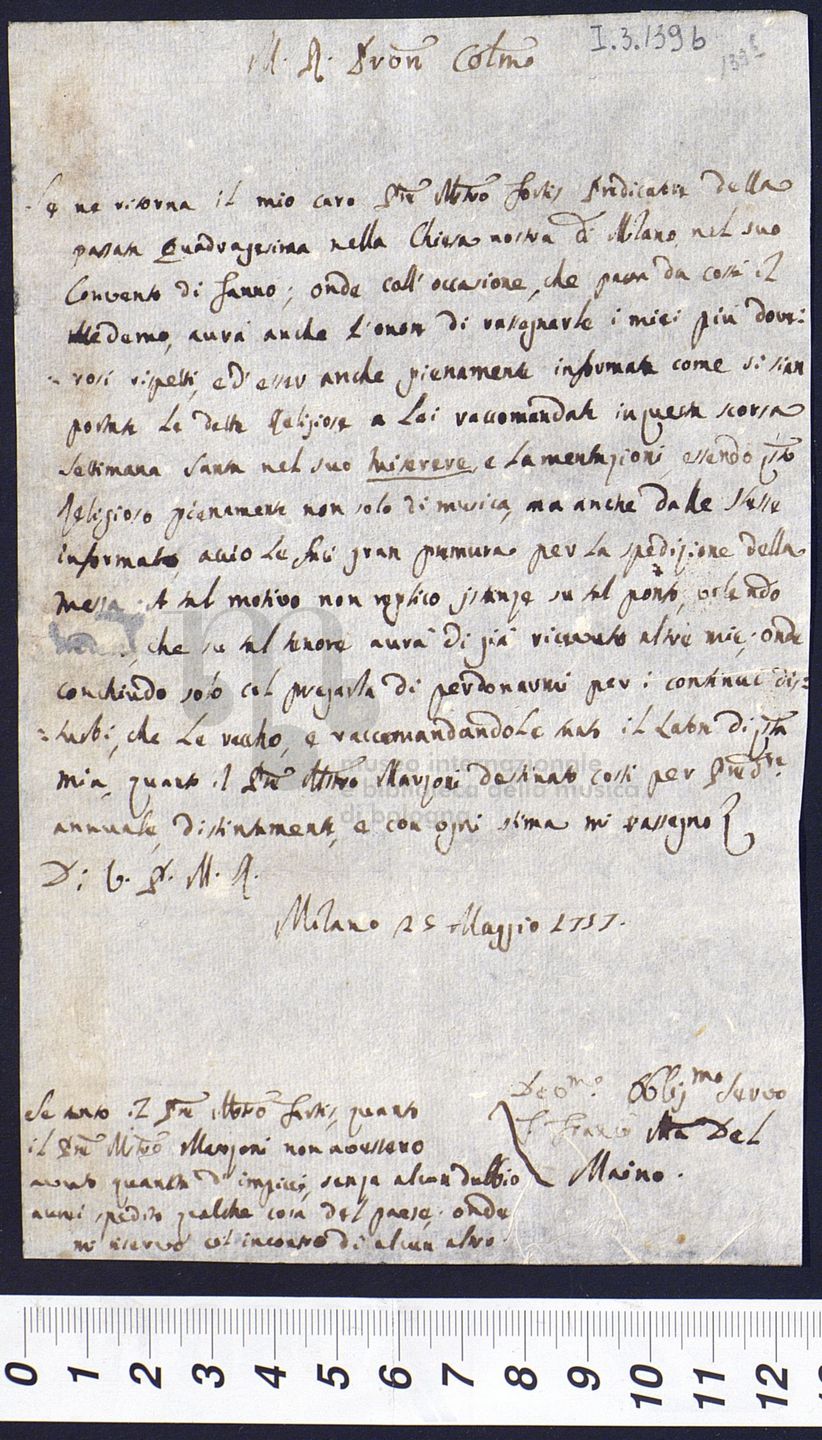 I.3.1396
M. R. Pron Colmo
Se ne ritorna il mio caro Pre Mstro Fortis Predicatore della
passata Quadragesima nella Chiesa nostra di Milano nel suo
Convento di Fanno; onde coll' occasione, che passa da costì il
Medemo, aurà anche l'onor di rassegnarle i miei più dove:
:rosi rispetti, ed' esser anche pienamente informata come si sian
portate le dette Religiose a Lei raccomandate in questa scorsa
Settimana Santa nel suo Miserere, e Lamentazioni, essendo qsto
Religioso pienamente non solo di musica, ma anche dalle stesse
informato, acciò le facci gran premura per la spedizione della
Messa. A tal motivo non replico istanze su tal ponto,
che su tal tenore aurà di già ricevuto altre mie; onde
conchiudo solo col pregarla di perdonarmi per i continui dis:
:turbi, che le reccho, e raccomandandole tanto il Lator di qsta
mia, quanto il Pre Mstro Manzoni destinato costì per Predre
annuale, distintamente, e con ogni stima mi rassegno
Di V. P. M. R.
Milano 25 Maggio 1757.
Devmo. Obbligmo Servo
F. Franco Ma Del
Maino.
Se tanto il Pre Mstro Fortis, quanto
il Pre Mstro Manzoni non avessero
avuto quantità d'impicci, senza alcun dubbio
aurei spedito qualche cosa del paese, onde
mi riservo col incontro di alcun altro.
museo internazionale
e biblioteca della musica
di bologna
0 1 2 3 4 5 6 7 8 9 10 11 12